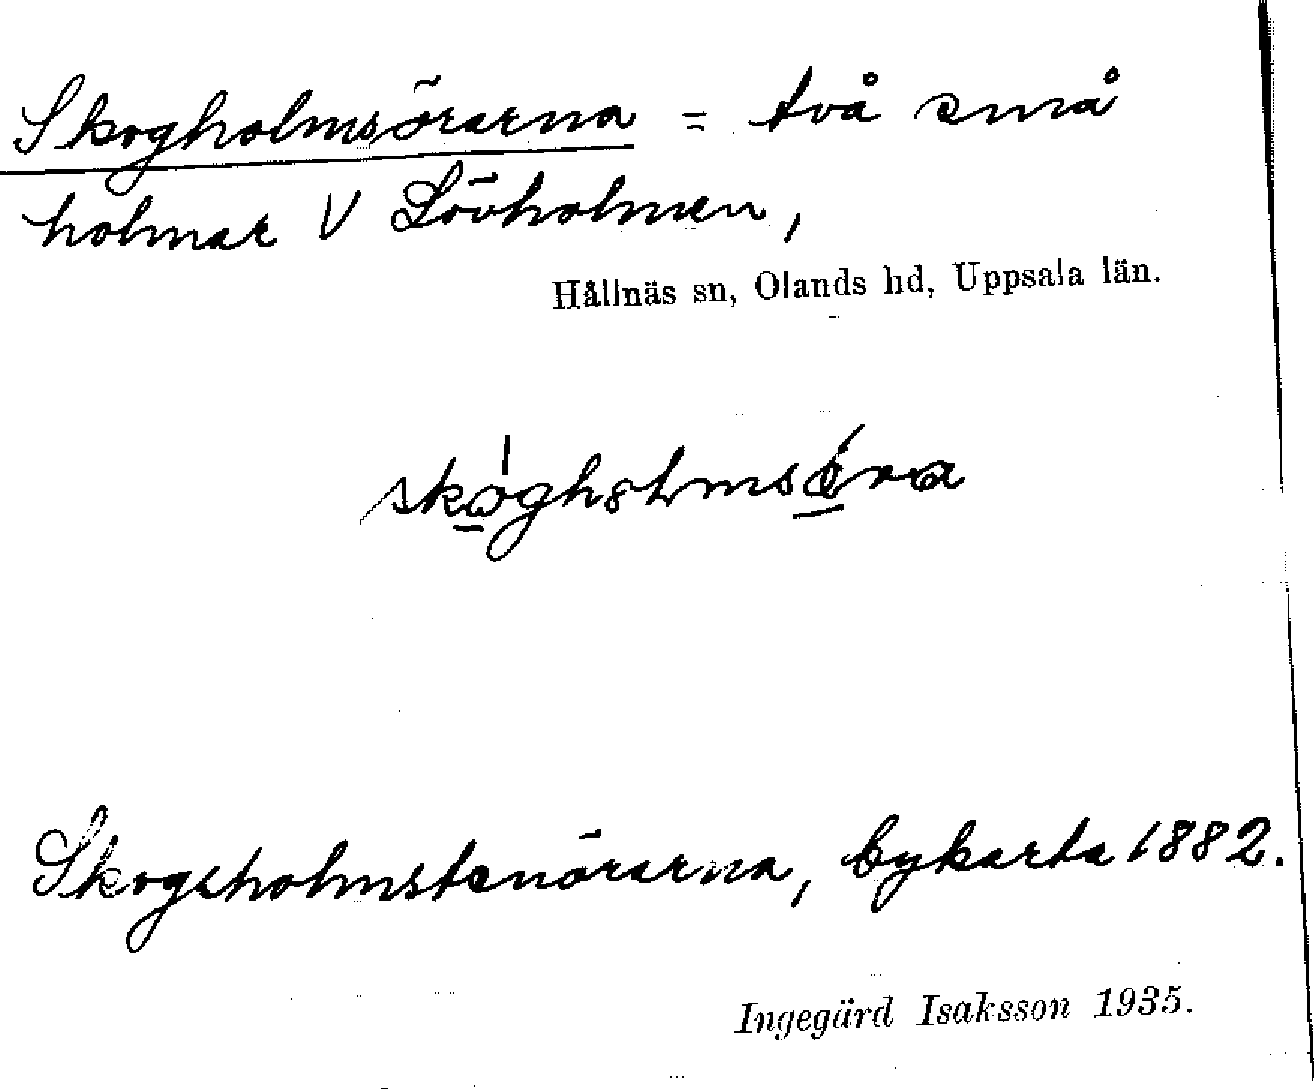 Skogholmsörarna = två små
holmar V Lövholmen,
Hållnäs sn, Olands hd, Uppsala län.
Skogsholmstenörarna, bykarta 1882.
Ingegärd Isaksson 1935.